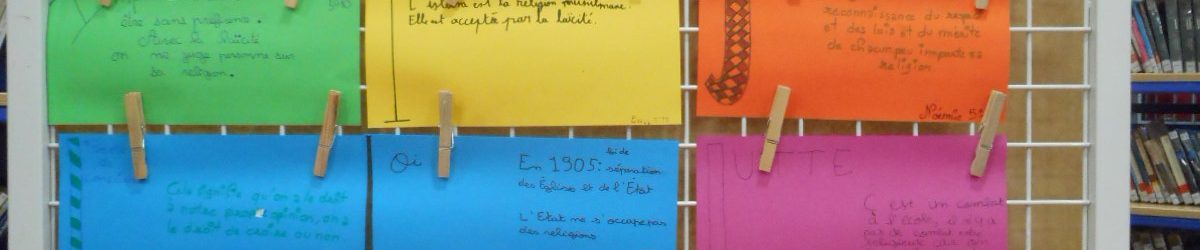 être sans préfoms.
Avec la laïcité
on ne juge personne sur
sa religion.
L'islam est la religion musulmane.
Elle est acceptée par la laïcité.
reconnaissance du respect
et des lois et du mérite
de chacun peu importe sa
religion
Noémie 5e
Cela signifie qu'on a le droit
à notre propre opinion, on a
le droit de croire ou non
Oi
En 1905: loi de séparation
des Églises et de l'État
L'Etat ne s'occupe pas
des religions
UTTE
C'est un combat
à l'école, il n'y a
pas de combat entre